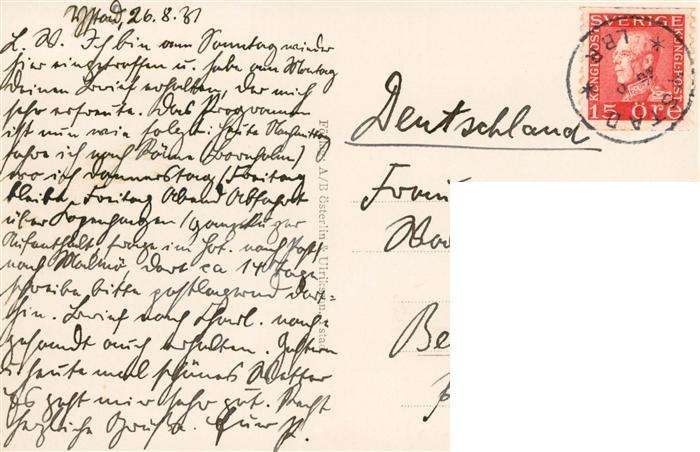 Ystad, 26.8.31
L. W. Ich bin am Sonntag wieder
hier eingetroffen u. habe am Montag
Deinen Brief erhalten, der mich
sehr erfreute. Das Programm
ist nun wie folgt: heute Nachmittag
fahre ich nach Rönne (Bornholm)
wo ich Donnerstag/Freitag
bleibe, Freitag Abend Abfahrt
über Kopenhagen
Aufenthalt
nach Malmö, dort ca 14 Tage
schreibe bitte postlagernd dort-
hin. Brief nach nach-
gesandt auch erhalten. Gestern
u. heute mal schönes Wetter
Es geht mir sehr gut. Recht
herzliche Grüße. Euer P.
A/B Österlin & Ulriksson, Ystad
SVERIGE
KUNGL·POST
KUNGL·POST
15 ÖRE
YSTAD
LBR
Deutschland
Frau
Be